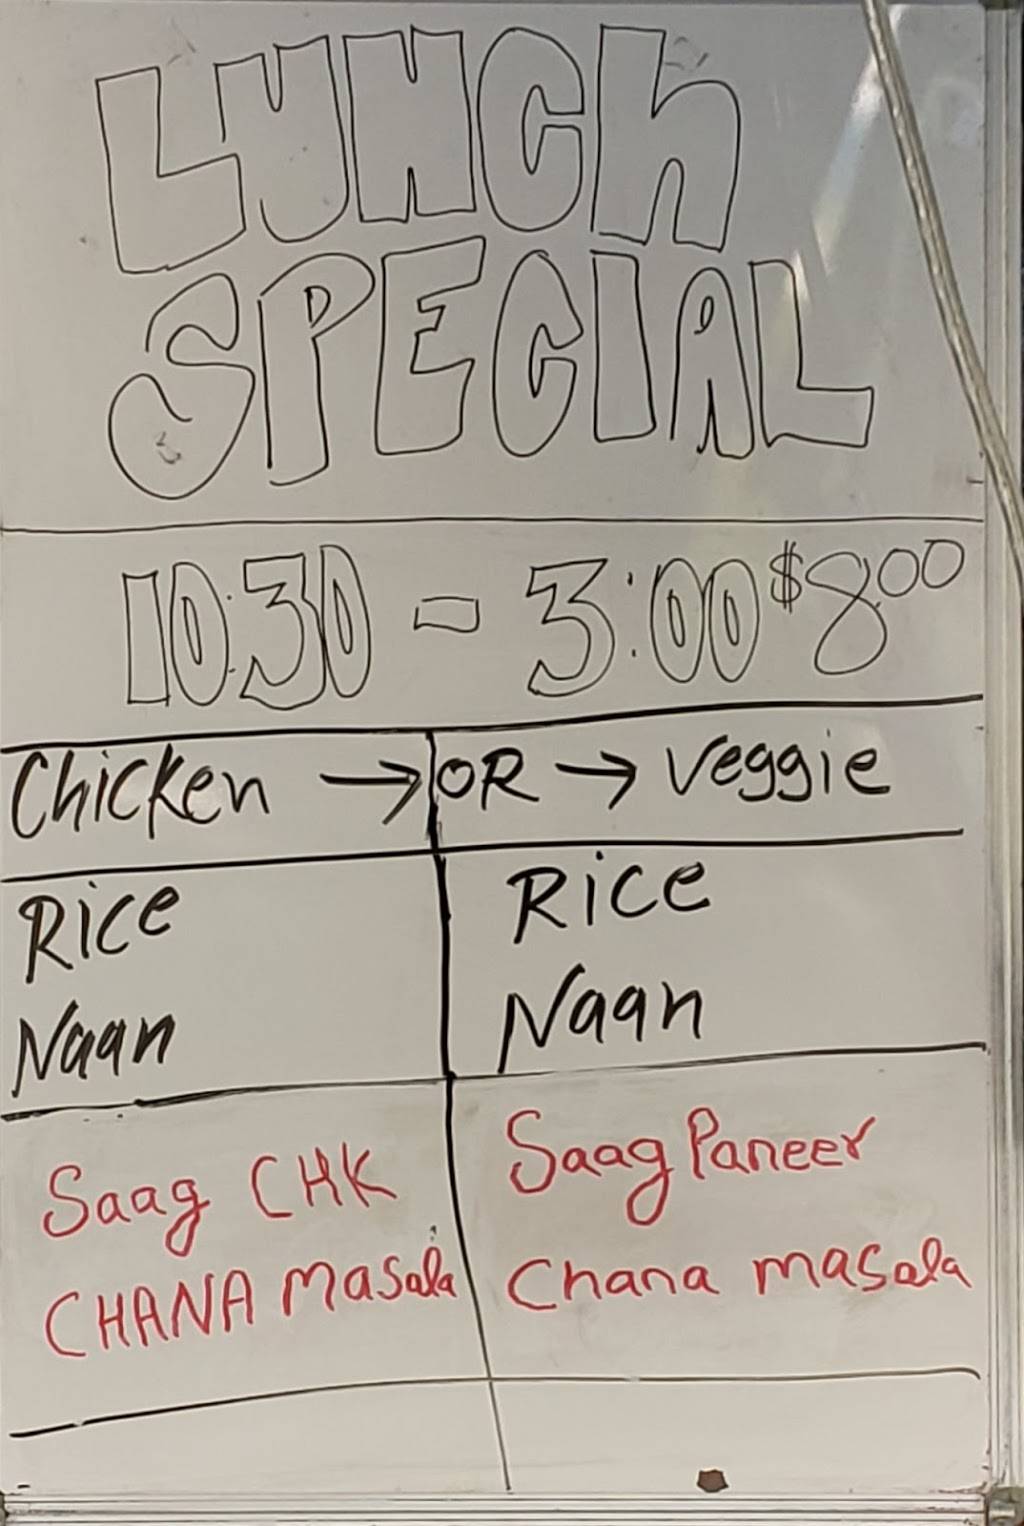 LUNCH
SPECIAL
10:30 - 3:00 $8.00
Chicken → OR → Veggie
Rice Rice
Naan Naan
Saag CHK Saag Paneer
CHANA Masala Chana masala